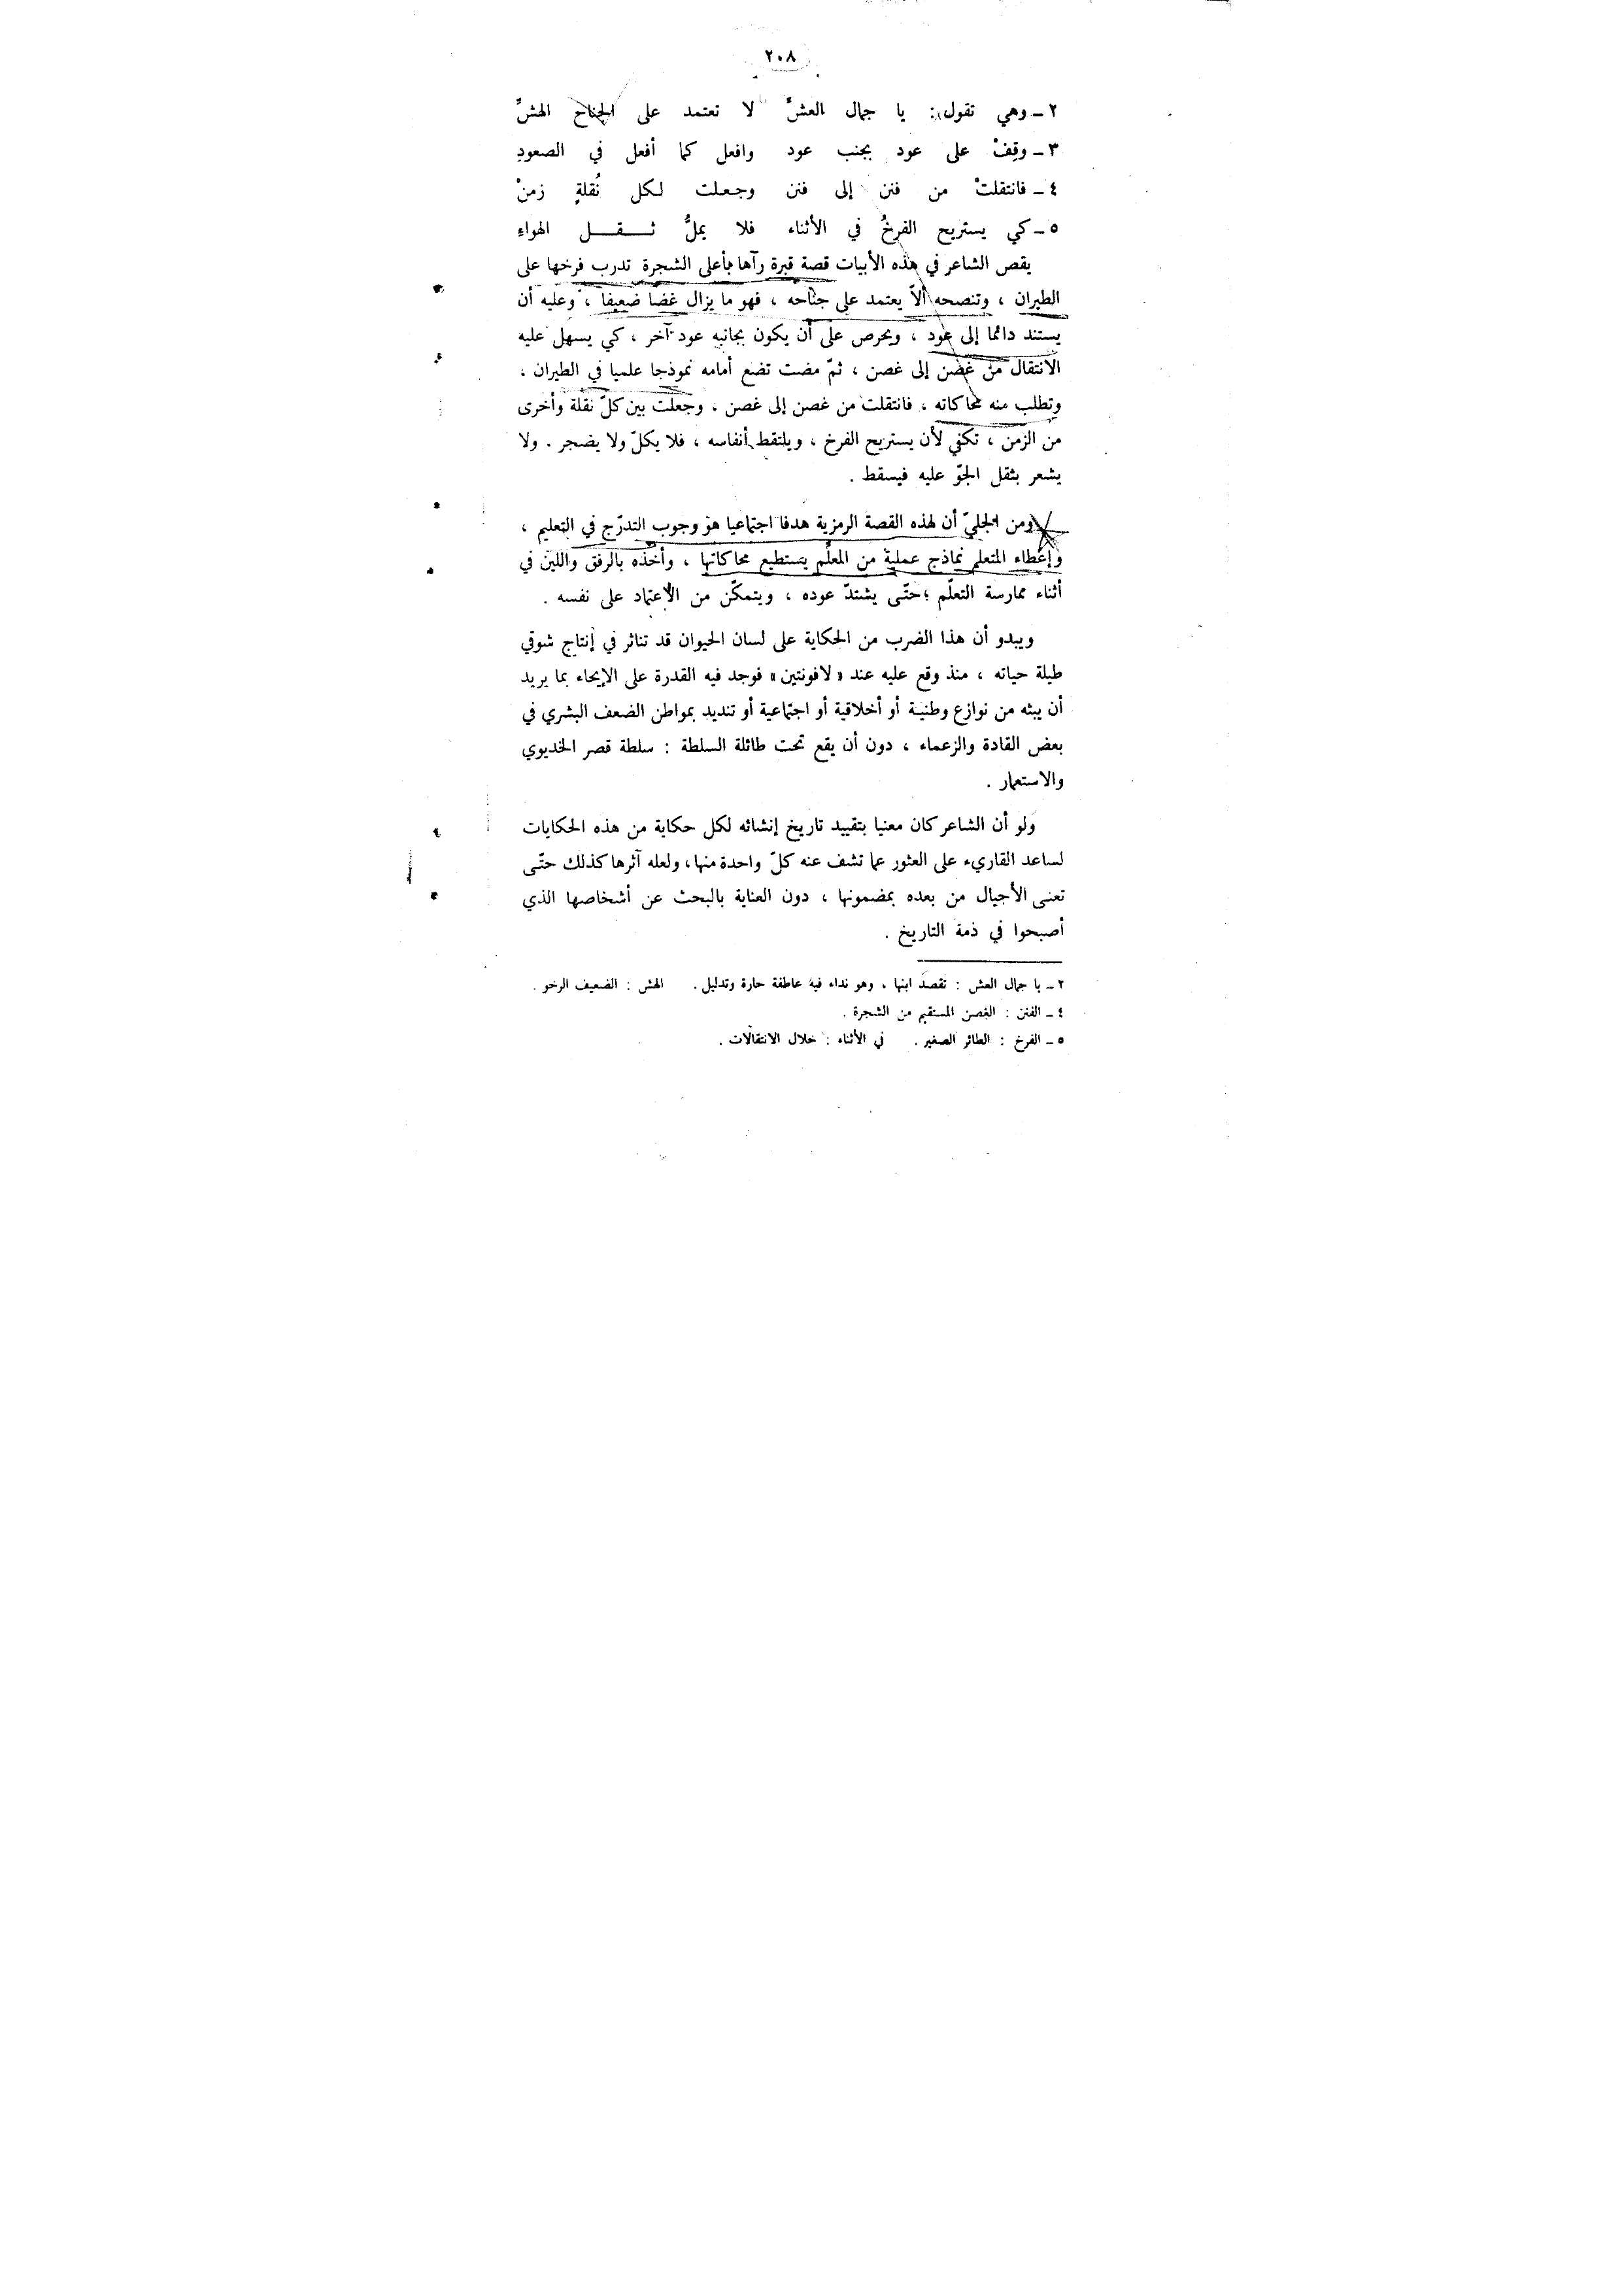 ٢٠٨
٢ – وهي تقول: يا جمال العشِّ لا تعتمد على الجناح الهشِّ
٣ – وقِفْ على عود بجنب عود وافعل كما أفعل في الصعودِ
٤ – فانتقلتْ من فنن إلى فنن وجعلت لكل نُقلةٍ زمنْ
٥ – كي يستريح الفرخُ في الأثناء فلا يملُّ ثقـل الهواءِ
يقص الشاعر في هذه الأبيات قصة قبرة رآها بأعلى الشجرة تدرب فرخها على
الطيران ، وتنصحه ألاّ يعتمد على جناحه ، فهو ما يزال غضّا ضعيفا ، وعليه أن
يستند دائما إلى عود ، ويحرص على أن يكون بجانبه عود آخر ، كي يسهل عليه
الانتقال من غصن إلى غصن ، ثمّ مضت تضع أمامه نموذجا علميا في الطيران ،
وتطلب منه محاكاته ، فانتقلت من غصن إلى غصن ، وجعلت بين كلّ نقلة وأخرى
من الزمن ، تكفي لأن يستريح الفرخ ، ويلتقط أنفاسه ، فلا يكلّ ولا يضجر . ولا
يشعر بثقل الجوّ عليه فيسقط .
ومن الجليّ أن لهذه القصة الرمزية هدفا اجتماعيا هو وجوب التدرّج في التعليم ،
وإعطاء المتعلم نماذج عملية من المعلّم يستطيع محاكاتها ، وأخذه بالرفق واللين في
أثناء ممارسة التعلّم ؛ حتّى يشتدّ عوده ، ويتمكّن من الاعتماد على نفسه .
ويبدو أن هذا الضرب من الحكاية على لسان الحيوان قد تناثر في إنتاج شوقي
طيلة حياته ، منذ وقع عليه عند « لافونتين » فوجد فيه القدرة على الإيحاء بما يريد
أن يبثه من نوازع وطنية أو أخلاقية أو اجتماعية أو تنديد بمواطن الضعف البشري في
بعض القادة والزعماء ، دون أن يقع تحت طائلة السلطة : سلطة قصر الخديوي
والاستعمار .
ولو أن الشاعر كان معنيا بتقييد تاريخ إنشائه لكل حكاية من هذه الحكايات
لساعد القاريء على العثور عما تشف عنه كلّ واحدة منها ، ولعله آثرها كذلك حتّى
تعنى الأجيال من بعده بمضمونها ، دون العناية بالبحث عن أشخاصها الذي
أصبحوا في ذمة التاريخ .
٢ – يا جمال العش : تقصد ابنها ، وهو نداء فيه عاطفة حارة وتدليل . الهش : الضعيف الرخو .
٤ – الفنن : الغصن المستقيم من الشجرة .
٥ – الفرخ : الطائر الصغير . في الأثناء : خلال الانتقالات .